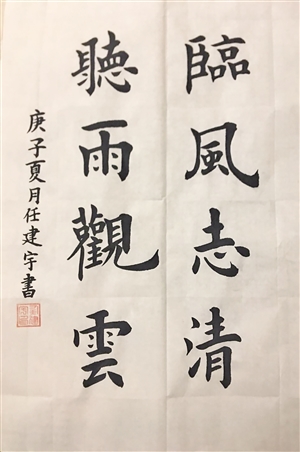 臨風志清
聽雨觀雲
庚子夏月任建宇書